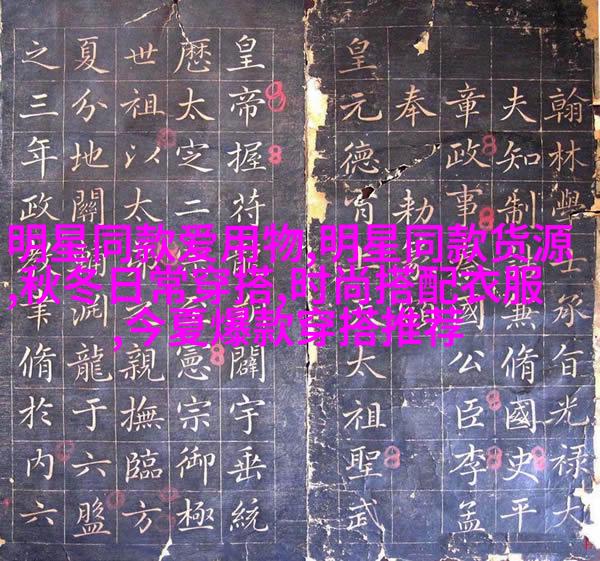 明星同款爱用物,明星同款货源
,秋冬日常穿搭,时尚搭配衣服
,今夏爆款穿搭推荐
翰林學士承旨光祿大
夫知制兼脩國史平
章政事國公臣李孟
奉勅
皇元德胄太祖聖武
皇帝握符闢宇垂統
厯太定二憲宗御極
世祖以太親撫臨方
夏分地關淵龍于六盤
之三年政肇脩於内六